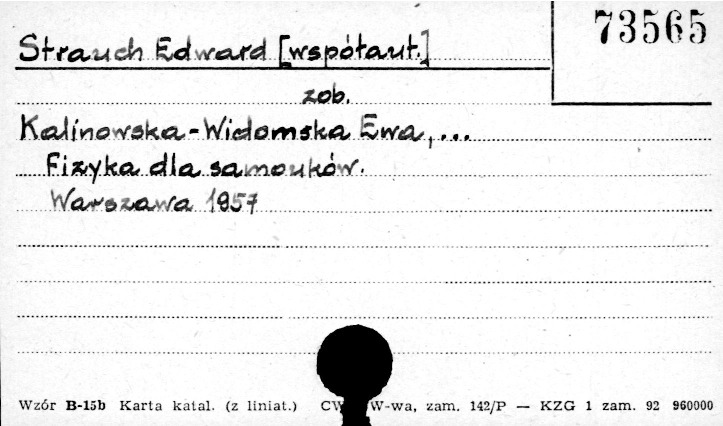 73565
Strauch Edward [współaut.]
zob.
Kalinowska-Widomska Ewa, ...
Fizyka dla samouków.
Warszawa 1957
Wzór B-15b Karta katal. (z liniat.) CW W-wa, zam. 142/P — KZG 1 zam. 92 960000